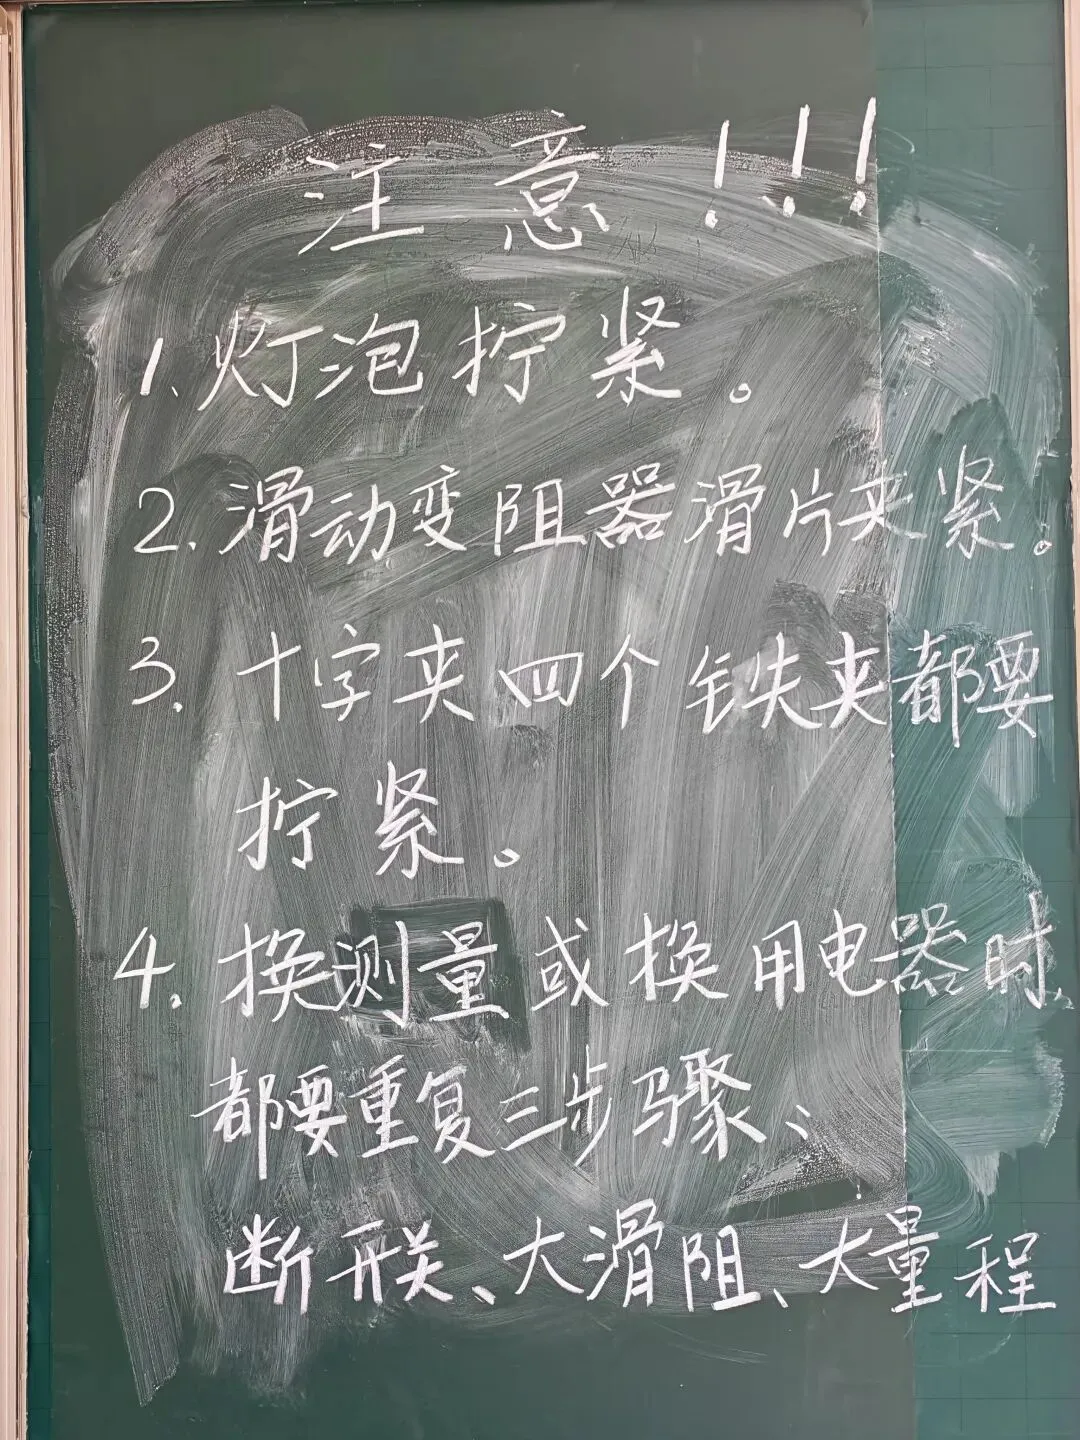 注意!!!
1.灯泡拧紧。
2.滑动变阻器滑片夹紧。
3.十字夹四个铁夹都要
拧紧。
4.换测量或换用电器时、
都要重复三步骤:
断开关、大滑阻、大量程